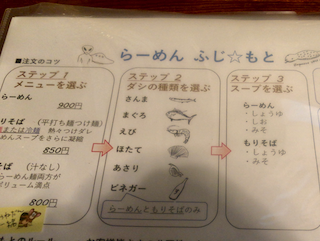 ■注文のコツ
らーめん ふじ☆もと
ステップ 1
メニューを選ぶ
めん
900円
りそば (平打ち麺つけ麺)
または冷麺 熱々つけダレ
めんスープをさらに凝縮
850円
そば (汁なし)
らーめん麺両方が
ボリューム満点
800円
ステップ 2
ダシの種類を選ぶ
さんま
まぐろ
えび
ほたて
あさり
ビネガー
らーめんともりそばのみ
ステップ 3
スープを選ぶ
らーめん
・しょうゆ
・しお
・みそ
もりそば
・しょうゆ
・みそ